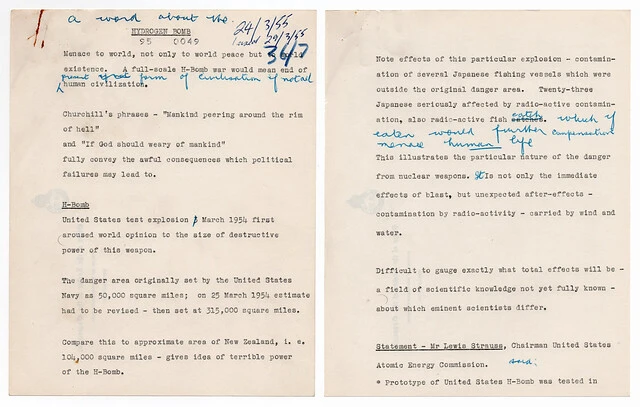 a word about the
HYDROGEN BOMB
95 0049
24/3/55
29/3/55
36/7
Menace to world, not only to world peace but to world
existence. A full-scale H-Bomb war would mean end of
present form of civilisation if not all
human civilization.
Churchill's phrases - "Mankind peering around the rim
of hell"
and "If God should weary of mankind"
fully convey the awful consequences which political
failures may lead to.
H-Bomb
United States test explosion March 1954 first
aroused world opinion to the size of destructive
power of this weapon.
The danger area originally set by the United States
Navy as 50,000 square miles; on 25 March 1954 estimate
had to be revised - then set at 315,000 square miles.
Compare this to approximate area of New Zealand, i. e.
104,000 square miles - gives idea of terrible power
of the H-Bomb.
Note effects of this particular explosion - contamin-
ation of several Japanese fishing vessels which were
outside the original danger area. Twenty-three
Japanese seriously affected by radio-active contamin-
ation, also radio-active fish catch which if
eaten would further compensation
menace human life
This illustrates the particular nature of the danger
from nuclear weapons. It is not only the immediate
effects of blast, but unexpected after-effects -
contamination by radio-activity - carried by wind and
water.
Difficult to gauge exactly what total effects will be -
a field of scientific knowledge not yet fully known -
about which eminent scientists differ.
Statement - Mr Lewis Strauss, Chairman United States
Atomic Energy Commission. said:
* Prototype of United States H-Bomb was tested in